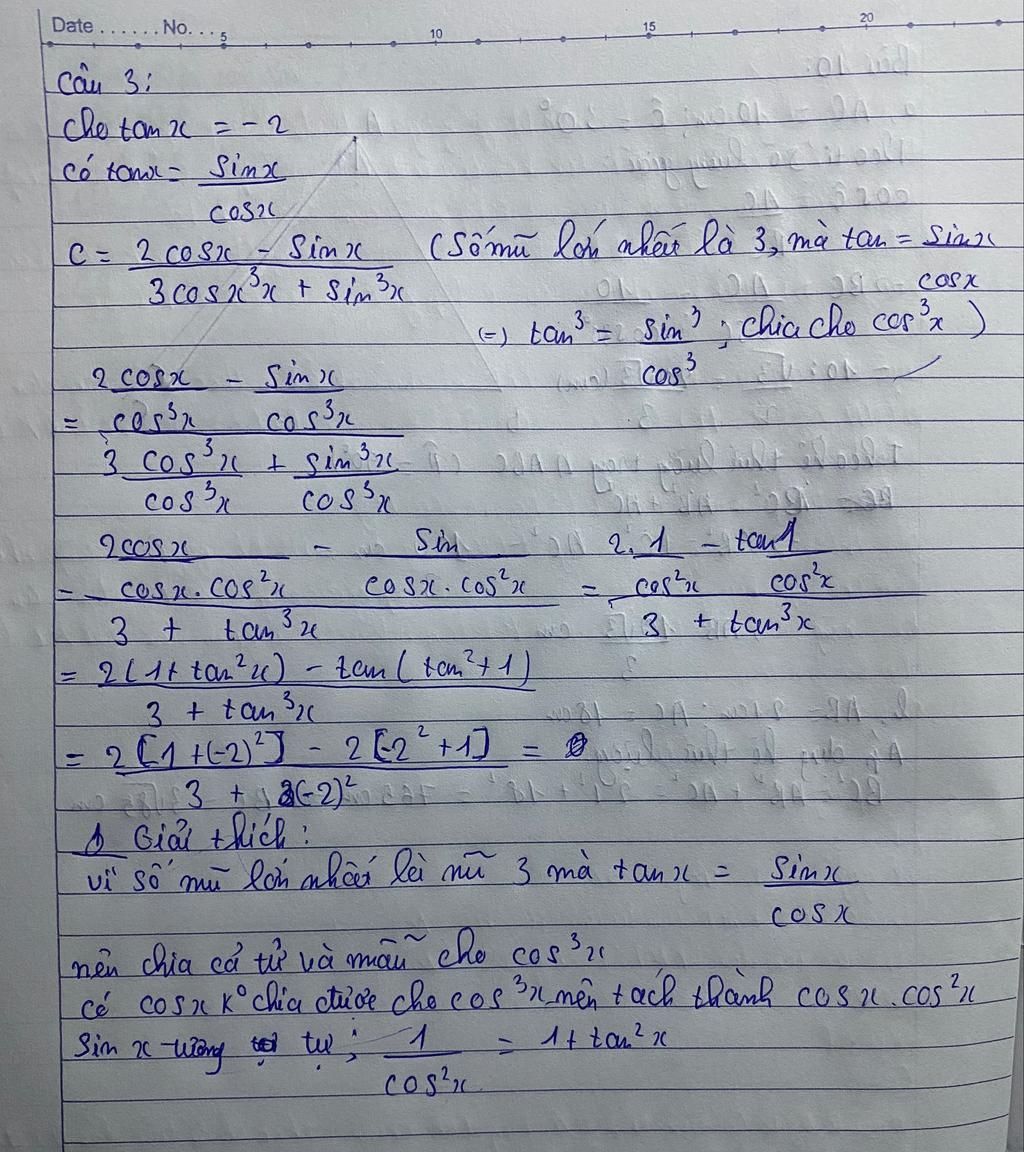 Date ...... No. ... 5 10 15 20
Câu 3:
Cho tan x = -2
có tanx = sinx / cosx
C = (2 cosx - sin x) / (3 cosx³x + sin³x) (Số mũ lớn nhất là 3, mà tan = sinx / cosx
(=) tan³ = sin³ / cos³ ; chia cho cos³x )
= (2 cosx / cos³x - sin x / cos³x) / (3 cos³x / cos³x + sin³x / cos³x)
= (2cosx / cosx.cos²x - sin / cosx.cos²x) / (3 + tan³x) = (2. 1 / cos²x - tan 1 / cos²x) / (3 + tan³x)
= (2(1+ tan²x) - tan ( tan²+1)) / (3 + tan³x)
= (2[1+(-2)²] - 2[-2²+1]) / (3 + (-2)²) =
Giải thích:
vì số mũ lớn nhất là mũ 3 mà tanx = sinx / cosx
nên chia cả tử và mẫu cho cos³x
có cosx k° chia được cho cos³x nên tách thành cosx.cos²x
sin x tương tự ; 1 / cos²x = 1+ tan²x